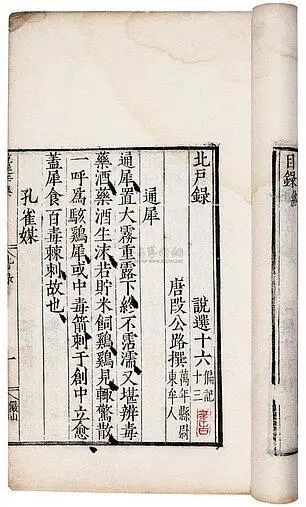 北戸録
說選十六 偏記十三
唐段公路撰 萬年縣尉 東牟人
通犀
通犀置大霧重露下終不霑濡又堪辨毒
藥酒藥酒生沫若貯米飼鷄鷄見輙驚散
一呼為駭鷄犀或中毒箭刺于創中立愈
蓋犀食百毒棘刺故也
孔雀媒
目錄